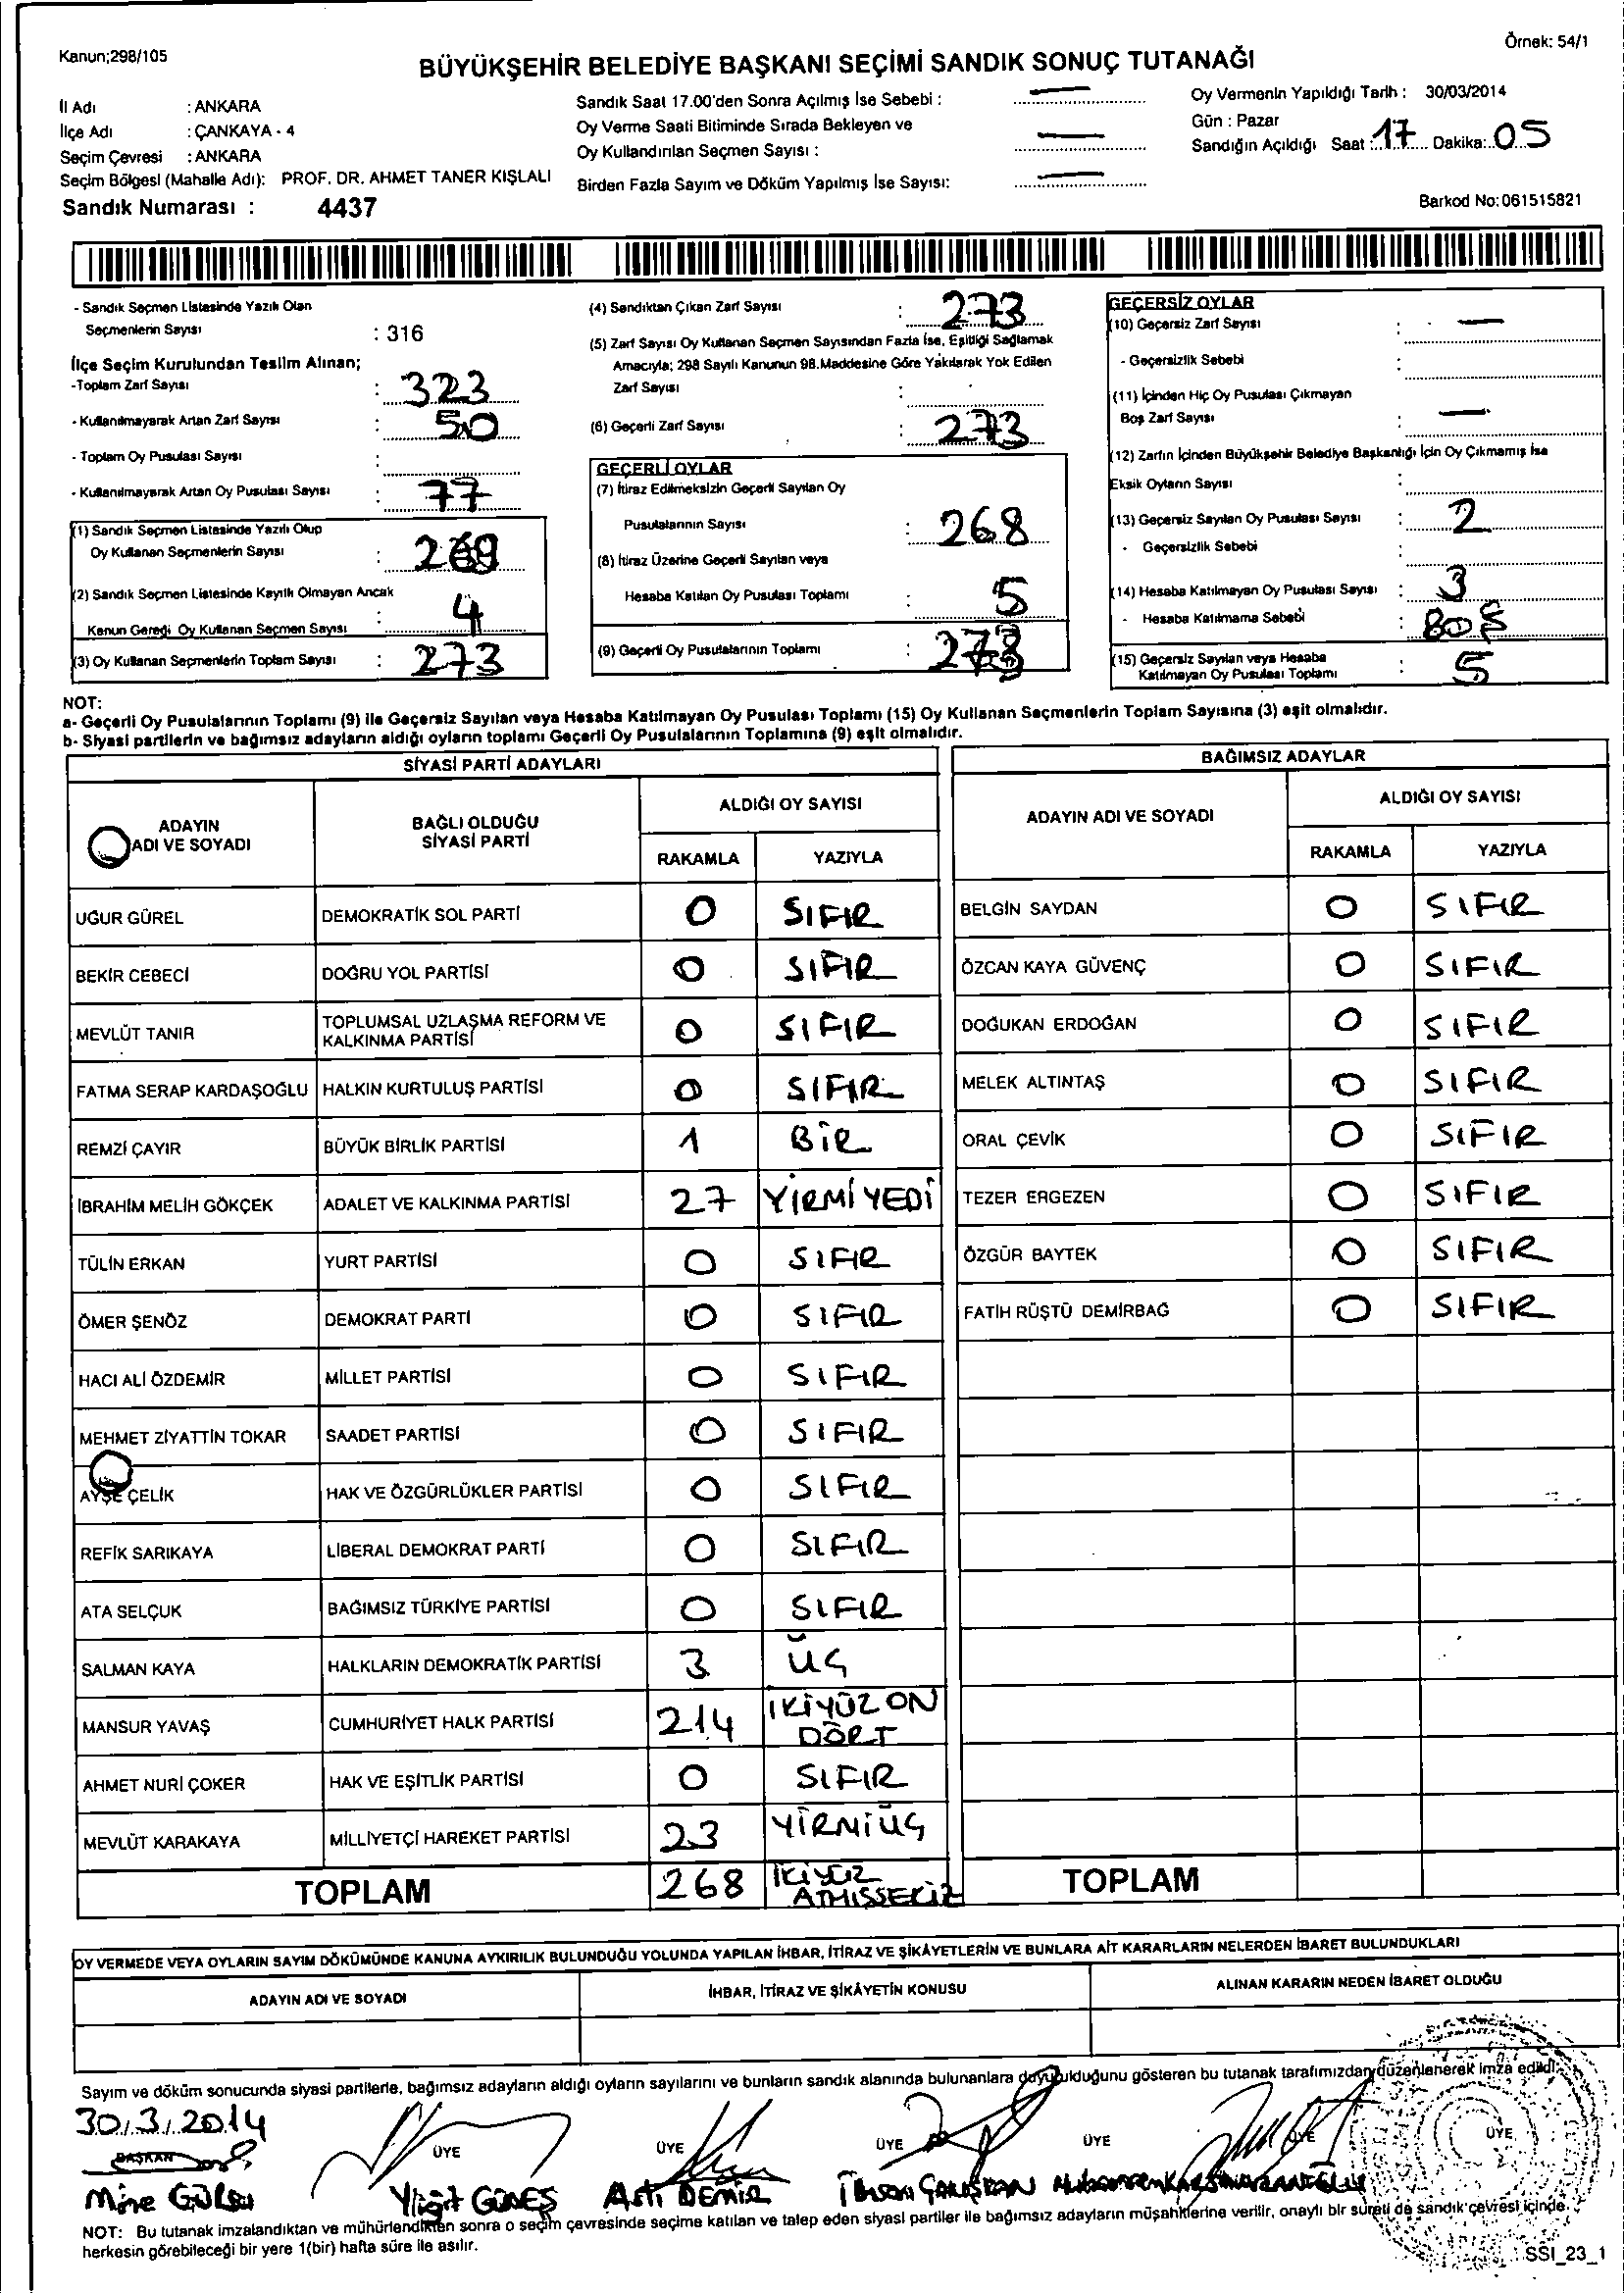 Kanun;298/105
Örnek: 54/1
BÜYÜKŞEHİR BELEDİYE BAŞKANI SEÇİMİ SANDIK SONUÇ TUTANAĞI
İl Adı : ANKARA
İlçe Adı : ÇANKAYA - 4
Seçim Çevresi : ANKARA
Seçim Bölgesi (Mahalle Adı): PROF. DR. AHMET TANER KIŞLALI
Sandık Numarası : 4437
Sandık Saat 17.00'den Sonra Açılmış İse Sebebi : —
Oy Verme Saati Bitiminde Sırada Bekleyen ve
Oy Kullandırılan Seçmen Sayısı : —
Birden Fazla Sayım ve Döküm Yapılmış İse Sayısı: —
Oy Vermenin Yapıldığı Tarih : 30/03/2014
Gün : Pazar
Sandığın Açıldığı Saat : 17 Dakika: 05
Barkod No:061515821
- Sandık Seçmen Listesinde Yazılı Olan
Seçmenlerin Sayısı : 316
İlçe Seçim Kurulundan Teslim Alınan;
-Toplam Zarf Sayısı : 323
- Kullanılmayarak Artan Zarf Sayısı : 50
- Toplam Oy Pusulası Sayısı :
- Kullanılmayarak Artan Oy Pusulası Sayısı : 77
(1) Sandık Seçmen Listesinde Yazılı Olup
Oy Kullanan Seçmenlerin Sayısı : 269
(2) Sandık Seçmen Listesinde Kayıtlı Olmayan Ancak
Kanun Gereği Oy Kullanan Seçmen Sayısı : 4
(3) Oy Kullanan Seçmenlerin Toplam Sayısı : 273
(4) Sandıktan Çıkan Zarf Sayısı : 273
(5) Zarf Sayısı Oy Kullanan Seçmen Sayısından Fazla İse, Eşitliği Sağlamak
Amacıyla; 298 Sayılı Kanunun 98.Maddesine Göre Yakılarak Yok Edilen
Zarf Sayısı :
(6) Geçerli Zarf Sayısı : 273
GEÇERLİ OYLAR
(7) İtiraz Edilmeksizin Geçerli Sayılan Oy
Pusulalarının Sayısı : 268
(8) İtiraz Üzerine Geçerli Sayılan veya
Hesaba Katılan Oy Pusulası Toplamı : 5
(9) Geçerli Oy Pusulalarının Toplamı : 273
GEÇERSİZ OYLAR
(10) Geçersiz Zarf Sayısı : —
- Geçersizlik Sebebi :
(11) İçinden Hiç Oy Pusulası Çıkmayan
Boş Zarf Sayısı : —
(12) Zarfın İçinden Büyükşehir Belediye Başkanlığı İçin Oy Çıkmamış İse
Eksik Oyların Sayısı :
(13) Geçersiz Sayılan Oy Pusulası Sayısı : 2
- Geçersizlik Sebebi :
(14) Hesaba Katılmayan Oy Pusulası Sayısı : 3
- Hesaba Katılmama Sebebi : BOŞ
(15) Geçersiz Sayılan veya Hesaba
Katılmayan Oy Pusulası Toplamı : 5
NOT:
a- Geçerli Oy Pusulalarının Toplamı (9) ile Geçersiz Sayılan veya Hesaba Katılmayan Oy Pusulası Toplamı (15) Oy Kullanan Seçmenlerin Toplam Sayısına (3) eşit olmalıdır.
b- Siyasi partilerin ve bağımsız adayların aldığı oyların toplamı Geçerli Oy Pusulalarının Toplamına (9) eşit olmalıdır.
SİYASİ PARTİ ADAYLARI
ADAYIN ADI VE SOYADI BAĞLI OLDUĞU SİYASİ PARTİ ALDIĞI OY SAYISI
RAKAMLA YAZIYLA
UĞUR GÜREL DEMOKRATİK SOL PARTİ 0 SIFIR
BEKİR CEBECİ DOĞRU YOL PARTİSİ 0 SIFIR
MEVLÜT TANIR TOPLUMSAL UZLAŞMA REFORM VE KALKINMA PARTİSİ 0 SIFIR
FATMA SERAP KARDAŞOĞLU HALKIN KURTULUŞ PARTİSİ 0 SIFIR
REMZİ ÇAYIR BÜYÜK BİRLİK PARTİSİ 1 BİR
İBRAHİM MELİH GÖKÇEK ADALET VE KALKINMA PARTİSİ 27 YİRMİ YEDİ
TÜLİN ERKAN YURT PARTİSİ 0 SIFIR
ÖMER ŞENÖZ DEMOKRAT PARTİ 0 SIFIR
HACI ALİ ÖZDEMİR MİLLET PARTİSİ 0 SIFIR
MEHMET ZİYATTİN TOKAR SAADET PARTİSİ 0 SIFIR
AYŞE ÇELİK HAK VE ÖZGÜRLÜKLER PARTİSİ 0 SIFIR
REFİK SARIKAYA LİBERAL DEMOKRAT PARTİ 0 SIFIR
ATA SELÇUK BAĞIMSIZ TÜRKİYE PARTİSİ 0 SIFIR
SALMAN KAYA HALKLARIN DEMOKRATİK PARTİSİ 3 ÜÇ
MANSUR YAVAŞ CUMHURİYET HALK PARTİSİ 214 İKİYÜZ ON DÖRT
AHMET NURİ ÇOKER HAK VE EŞİTLİK PARTİSİ 0 SIFIR
MEVLÜT KARAKAYA MİLLİYETÇİ HAREKET PARTİSİ 23 YİRMİ ÜÇ
TOPLAM 268 İKİYÜZ ATMISSEKİZ
BAĞIMSIZ ADAYLAR
ADAYIN ADI VE SOYADI ALDIĞI OY SAYISI
RAKAMLA YAZIYLA
BELGİN SAYDAN 0 SIFIR
ÖZCAN KAYA GÜVENÇ 0 SIFIR
DOĞUKAN ERDOĞAN 0 SIFIR
MELEK ALTINTAŞ 0 SIFIR
ORAL ÇEVİK 0 SIFIR
TEZER ERGEZEN 0 SIFIR
ÖZGÜR BAYTEK 0 SIFIR
FATİH RÜŞTÜ DEMİRBAĞ 0 SIFIR
TOPLAM
OY VERMEDE VEYA OYLARIN SAYIM DÖKÜMÜNDE KANUNA AYKIRILIK BULUNDUĞU YOLUNDA YAPILAN İHBAR, İTİRAZ VE ŞİKÂYETLERİN VE BUNLARA AİT KARARLARIN NELERDEN İBARET BULUNDUKLARI
ADAYIN ADI VE SOYADI İHBAR, İTİRAZ VE ŞİKÂYETİN KONUSU ALINAN KARARIN NEDEN İBARET OLDUĞU
Sayım ve döküm sonucunda siyasi partilerle, bağımsız adayların aldığı oyların sayılarını ve bunların sandık alanında bulunanlara duyurulduğunu gösteren bu tutanak tarafımızdan düzenlenerek imza edildi.
30.3.2014
BAŞKAN ÜYE ÜYE ÜYE ÜYE ÜYE ÜYE
Mine Yiğit GÜNEŞ Aslı DEMİR İhsan ÇALIŞKAN
NOT: Bu tutanak imzalandıktan ve mühürlendikten sonra o seçim çevresinde seçime katılan ve talep eden siyasi partiler ile bağımsız adayların müşahitlerine verilir, onaylı bir sureti de sandık çevresi içinde
herkesin görebileceği bir yere 1(bir) hafta süre ile asılır.
SSI_23_1